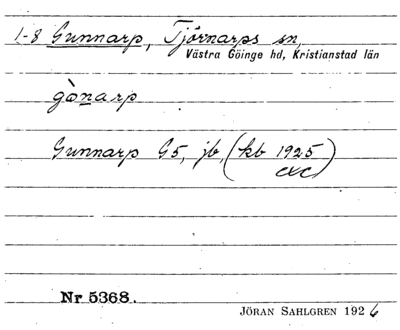 1-8 Gunnarp, Tjörnarps sn,
Västra Göinge hd, Kristianstad län
gònarp
Gunnarp G5, jb, (kb 1925)
cxc
Nr 5368.
JÖRAN SAHLGREN 1926